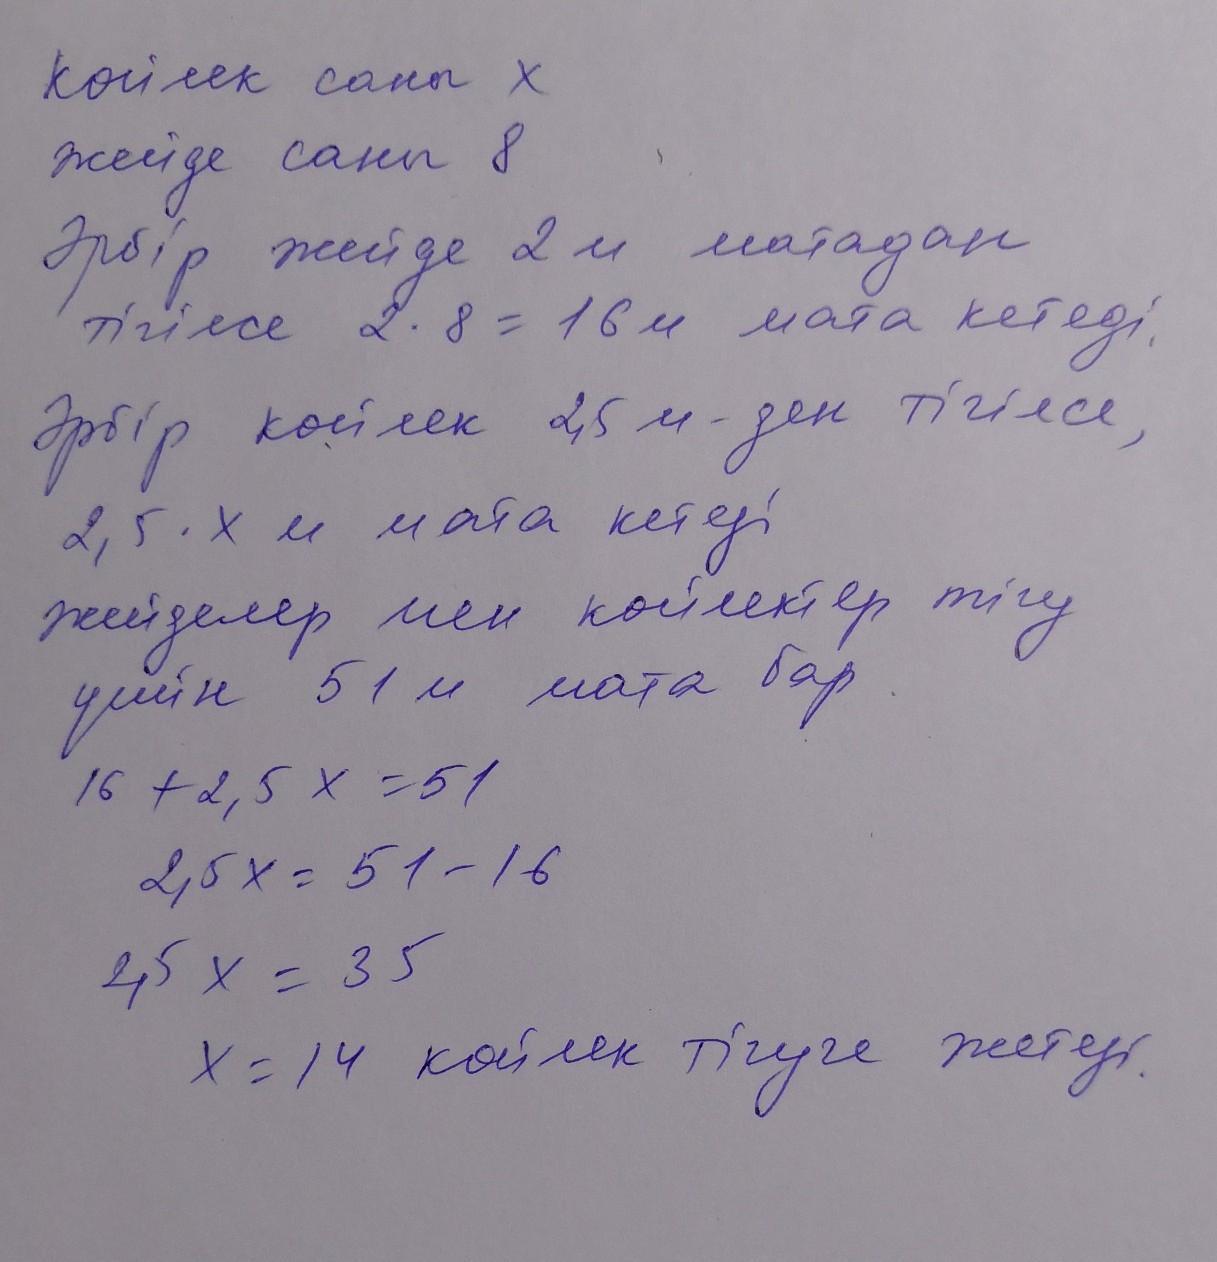 Көйлек саны x
жейде саны 8
Әрбір жейде 2 м матадан
тігілсе 2 · 8 = 16 м мата кетеді.
Әрбір көйлек 2,5 м-ден тігілсе,
2,5 · x м мата кетеді
жейделер мен көйлектер тігу
үшін 51 м мата бар.
16 + 2,5 x = 51
2,5x = 51 - 16
2,5 x = 35
x = 14 көйлек тігуге жетеді.